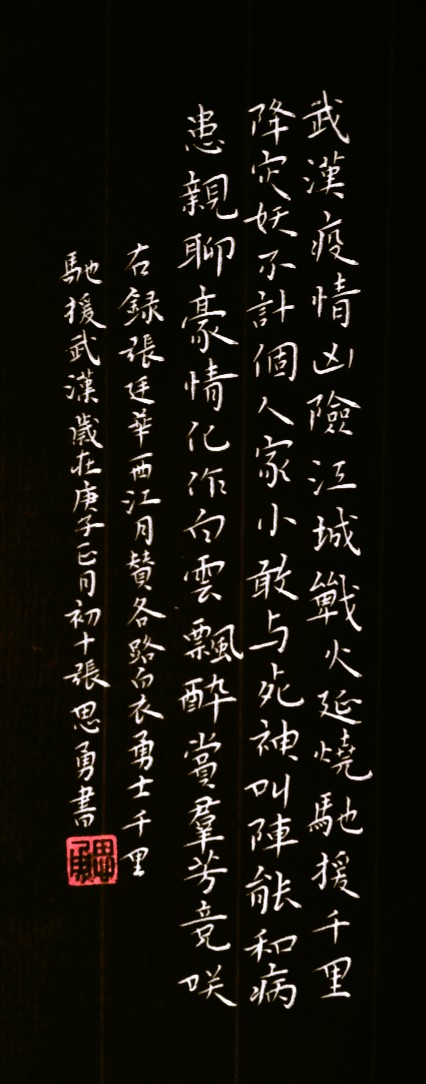 武漢疫情凶險江城戰火延燒馳援千里
降灾妖不計個人家小敢与死神叫陣能和病
患親聊豪情化作白雲飄醉賞羣芳竞咲
右録張廷華西江月贊各路白衣勇士千里
馳援武漢歲在庚子正月初十張思勇書
思勇